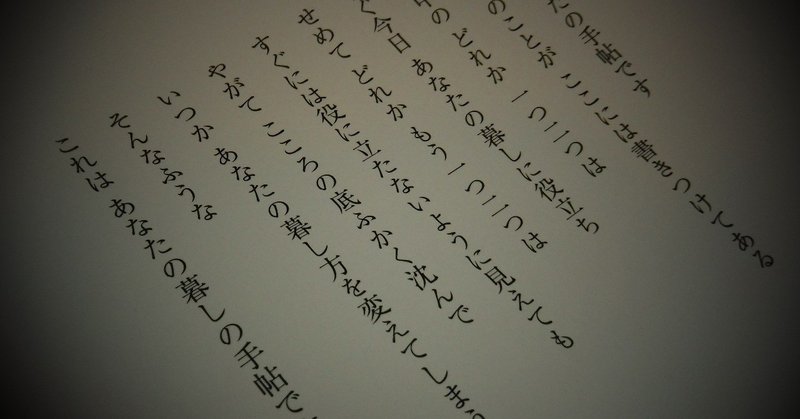 たの手帖です
のことが ここには書きつけてある
の どれか 一つ二つは
今日 あなたの暮しに役立ち
せめて どれか もう一つ二つは
すぐには役に立たないように見えても
やがて こころの底ふかく沈んで
いつか あなたの暮し方を変えてしまう
そんなふうな
これは あなたの暮しの手帖で